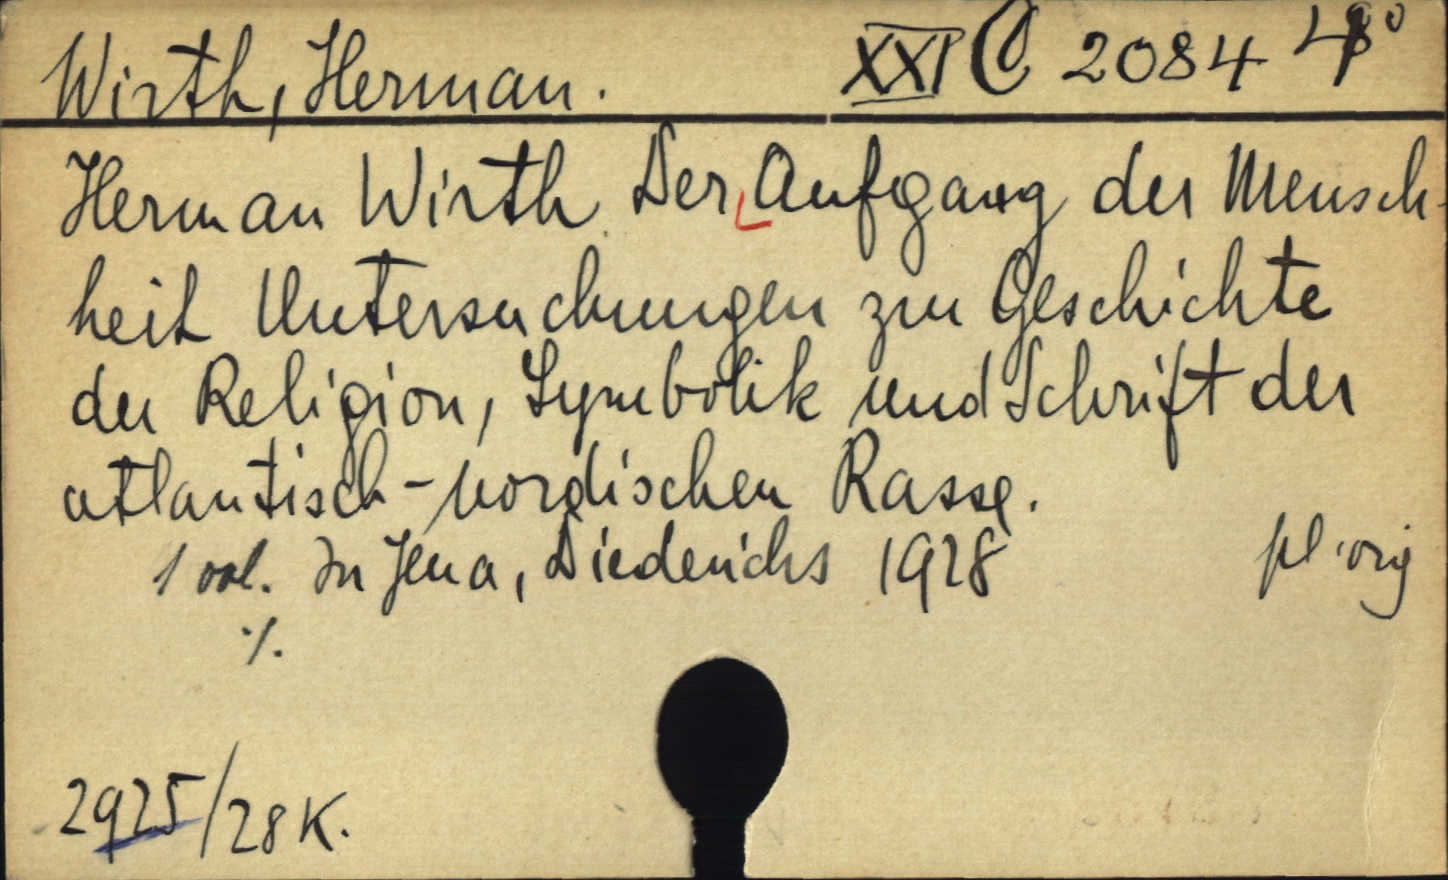 Wirth, Herman. XXI C 2084 4°
Herman Wirth Der Aufgang der Mensch-
heit Untersuchungen zur Geschichte
der Religion, Symbolik und Schrift der
atlantisch-nordischen Rasse.
1 vol. In Jena, Diederichs 1928 pl. orig
./.
2925/28 K.